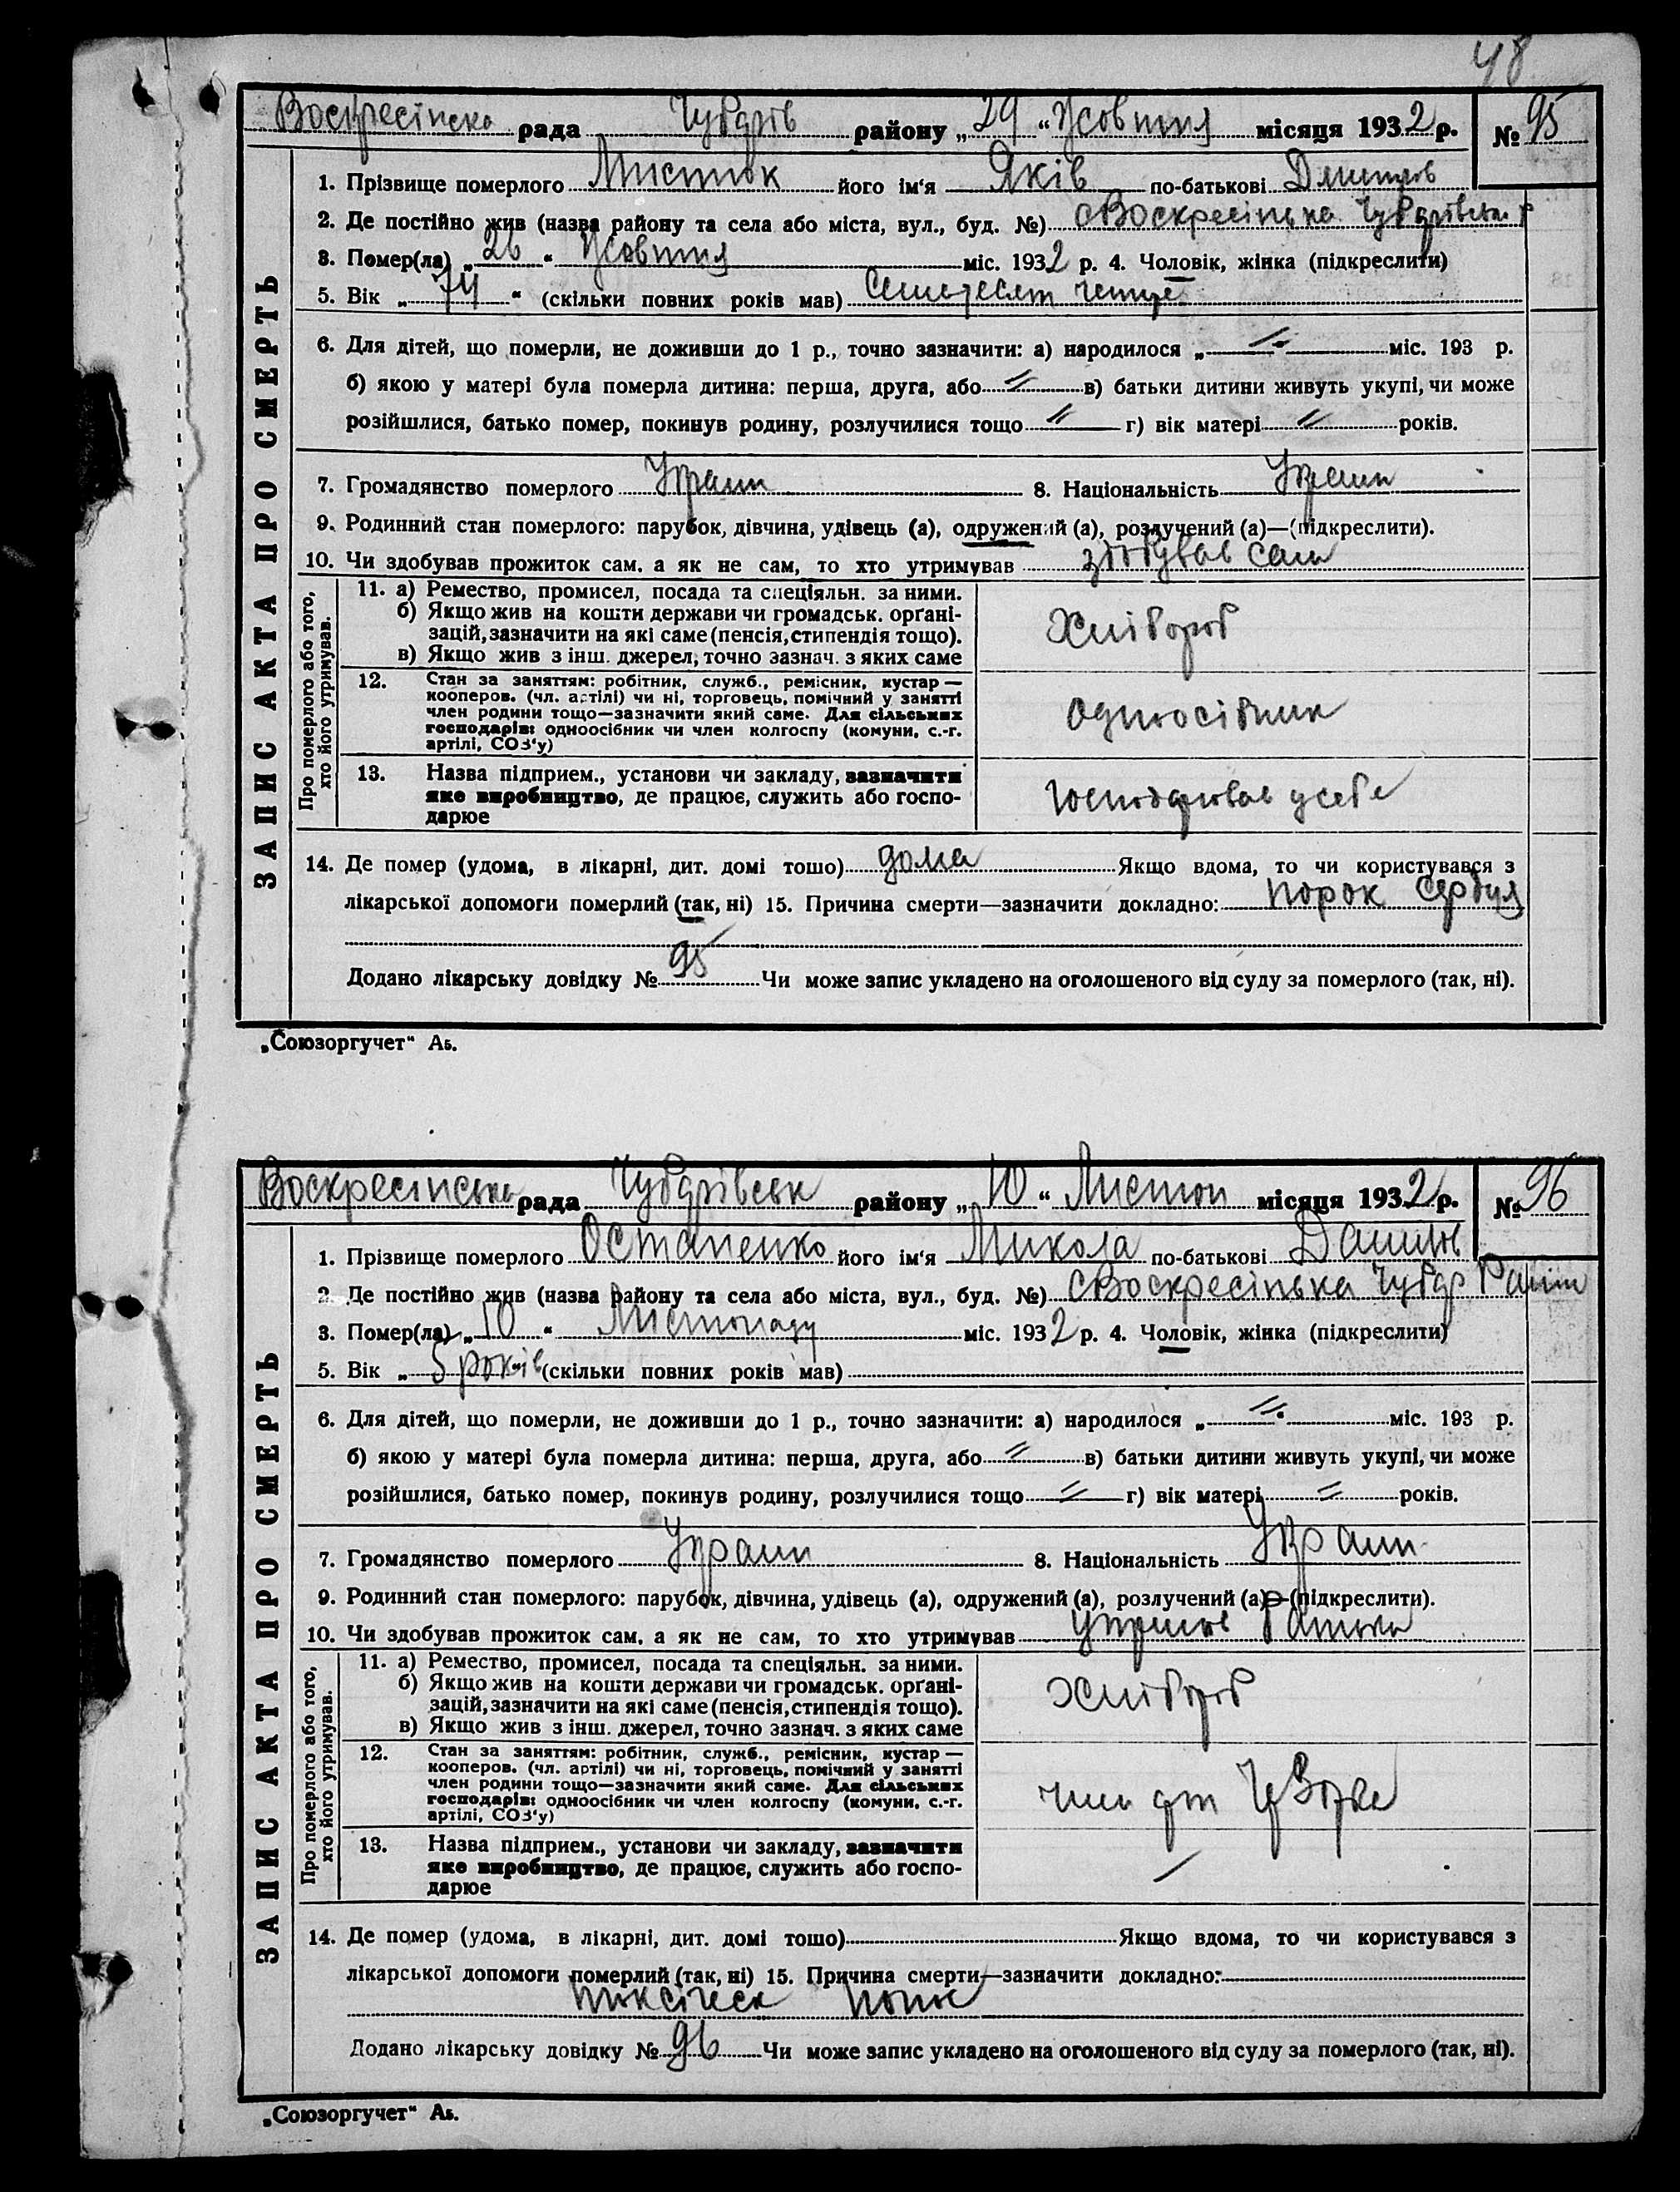 48
Воскресінська рада Чубарів району „29“ Жовтня місяця 1932 р. № 95
ЗАПИС АКТА ПРО СМЕРТЬ
1. Прізвище померлого Мисток його ім'я Яків по-батькові Дмитров
2. Де постійно жив (назва району та села або міста, вул., буд. №) с Воскресінька Чубарівськ р
3. Помер(ла) „26“ Жовтня міс. 1932 р. 4. Чоловік, жінка (підкреслити)
5. Вік „74“ (скільки повних років мав) семдесят четире
6. Для дітей, що померли, не доживши до 1 р., точно зазначити: а) народилося „ — “ міс. 193 р.
б) якою у матері була померла дитина: перша, друга, або // в) батьки дитини живуть укупі, чи може
розійшлися, батько помер, покинув родину, розлучилися тощо // г) вік матері // років.
7. Громадянство померлого Украин 8. Національність Украин
9. Родинний стан померлого: парубок, дівчина, удівець (а), одружений (а), розлучений (а)—(підкреслити).
10. Чи здобував прожиток сам, а як не сам, то хто утримував здобував сам
Про померлого або того, хто його утримував.
11. а) Ремество, промисел, посада та спеціяльн. за ними.
б) Якщо жив на кошти держави чи громадськ. орґані-
зацій, зазначити на які саме (пенсія, стипендія тощо).
в) Якщо жив з інш. джерел, точно зазнач. з яких саме
Хлібороб
12. Стан за заняттям: робітник, служб., ремісник, кустар —
кооперов. (чл. артілі) чи ні, торговець, помічний у занятті
член родини тощо—зазначити який саме. Для сільських
господарів: одноосібник чи член колгоспу (комуни, с.-г.
артілі, СОЗ'у)
Одноосібник
13. Назва підприєм., установи чи закладу, зазначити
яке виробництво, де працює, служить або госпо-
дарює
Господарював у себе
14. Де помер (удома, в лікарні, дит. домі тошо) дома Якщо вдома, то чи користувався з
лікарської допомоги померлий (так, ні) 15. Причина смерти—зазначити докладно: порок сердця
Додано лікарську довідку № 95 Чи може запис укладено на оголошеного від суду за померлого (так, ні).
„Союзоргучет“ А5.
Воскресінська рада Чубарівськ району „10“ Листоп місяця 1932 р. № 96
ЗАПИС АКТА ПРО СМЕРТЬ
1. Прізвище померлого Остапенко його ім'я Микола по-батькові Данилов
2. Де постійно жив (назва району та села або міста, вул., буд. №) с Воскресінька Чубар Район
3. Помер(ла) „10“ Листопаду міс. 1932 р. 4. Чоловік, жінка (підкреслити)
5. Вік „5 років“ (скільки повних років мав)
6. Для дітей, що померли, не доживши до 1 р., точно зазначити: а) народилося „ // “ міс. 193 р.
б) якою у матері була померла дитина: перша, друга, або // в) батьки дитини живуть укупі, чи може
розійшлися, батько помер, покинув родину, розлучилися тощо // г) вік матері // років.
7. Громадянство померлого Украин 8. Національність Украин
9. Родинний стан померлого: парубок, дівчина, удівець (а), одружений (а), розлучений (а)—(підкреслити).
10. Чи здобував прожиток сам, а як не сам, то хто утримував батько
Про померлого або того, хто його утримував.
11. а) Ремество, промисел, посада та спеціяльн. за ними.
б) Якщо жив на кошти держави чи громадськ. орґані-
зацій, зазначити на які саме (пенсія, стипендія тощо).
в) Якщо жив з інш. джерел, точно зазнач. з яких саме
Хлібороб
12. Стан за заняттям: робітник, служб., ремісник, кустар —
кооперов. (чл. артілі) чи ні, торговець, помічний у занятті
член родини тощо—зазначити який саме. Для сільських
господарів: одноосібник чи член колгоспу (комуни, с.-г.
артілі, СОЗ'у)
член арт
13. Назва підприєм., установи чи закладу, зазначити
яке виробництво, де працює, служить або госпо-
дарює
14. Де помер (удома, в лікарні, дит. домі тошо) Якщо вдома, то чи користувався з
лікарської допомоги померлий (так, ні) 15. Причина смерти—зазначити докладно:
токсическ понос
Додано лікарську довідку № 96 Чи може запис укладено на оголошеного від суду за померлого (так, ні).
„Союзоргучет“ А5.